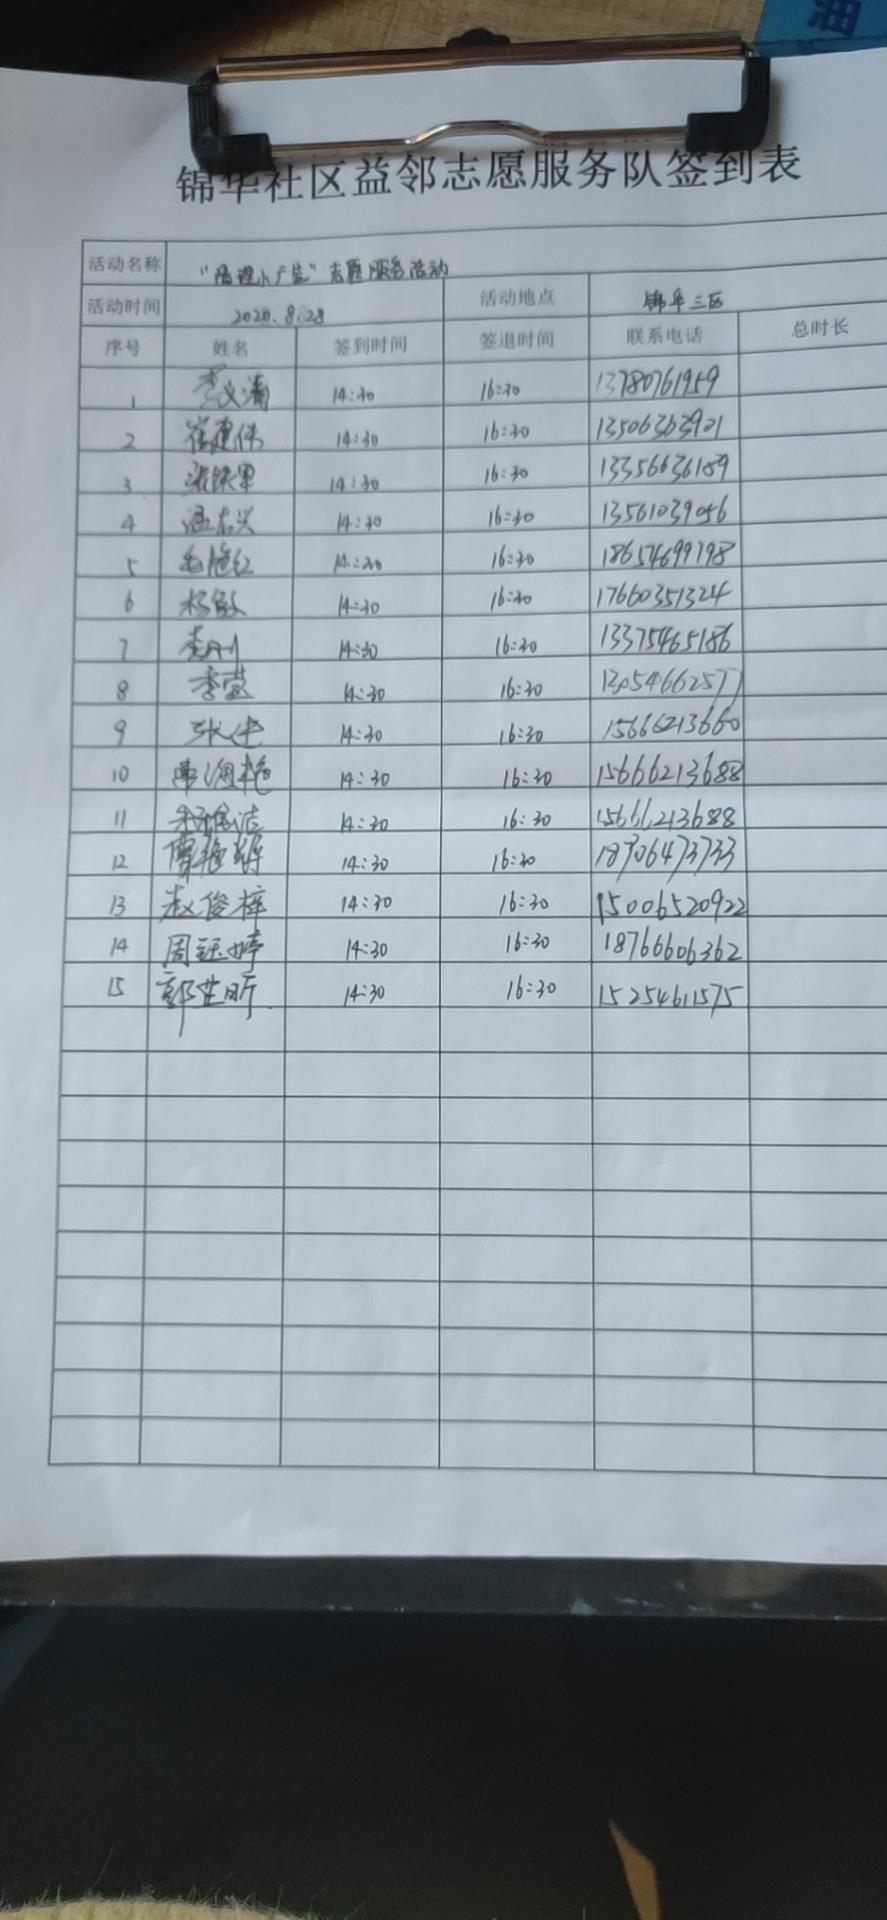 油
锦华社区益邻志愿服务队签到表
活动名称 "清理小广告"志愿服务活动
活动时间 2020.8.28 活动地点 锦华三区
序号 姓名 签到时间 签退时间 联系电话 总时长
1 李义清 14:30 16:30 13780761959
2 崔建伟 14:30 16:30 13506363921
3 张铁军 14:30 16:30 13356636189
4 孟右兴 14:30 16:30 13561039056
5 毛艳红 14:30 16:30 18654699798
6 杨敏 14:30 16:30 17660351324
7 李刚 14:30 16:30 13375465186
8 李莹 14:30 16:30
9 14:30 16:30 15666213660
10 14:30 16:30 15666213688
11 14:30 16:30 15666213688
12 14:30 16:30 18706473733
13 赵俊梓 14:30 16:30 15006520922
14 周钰婷 14:30 16:30 18766606362
15 郭芷昕 14:30 16:30 15254611575